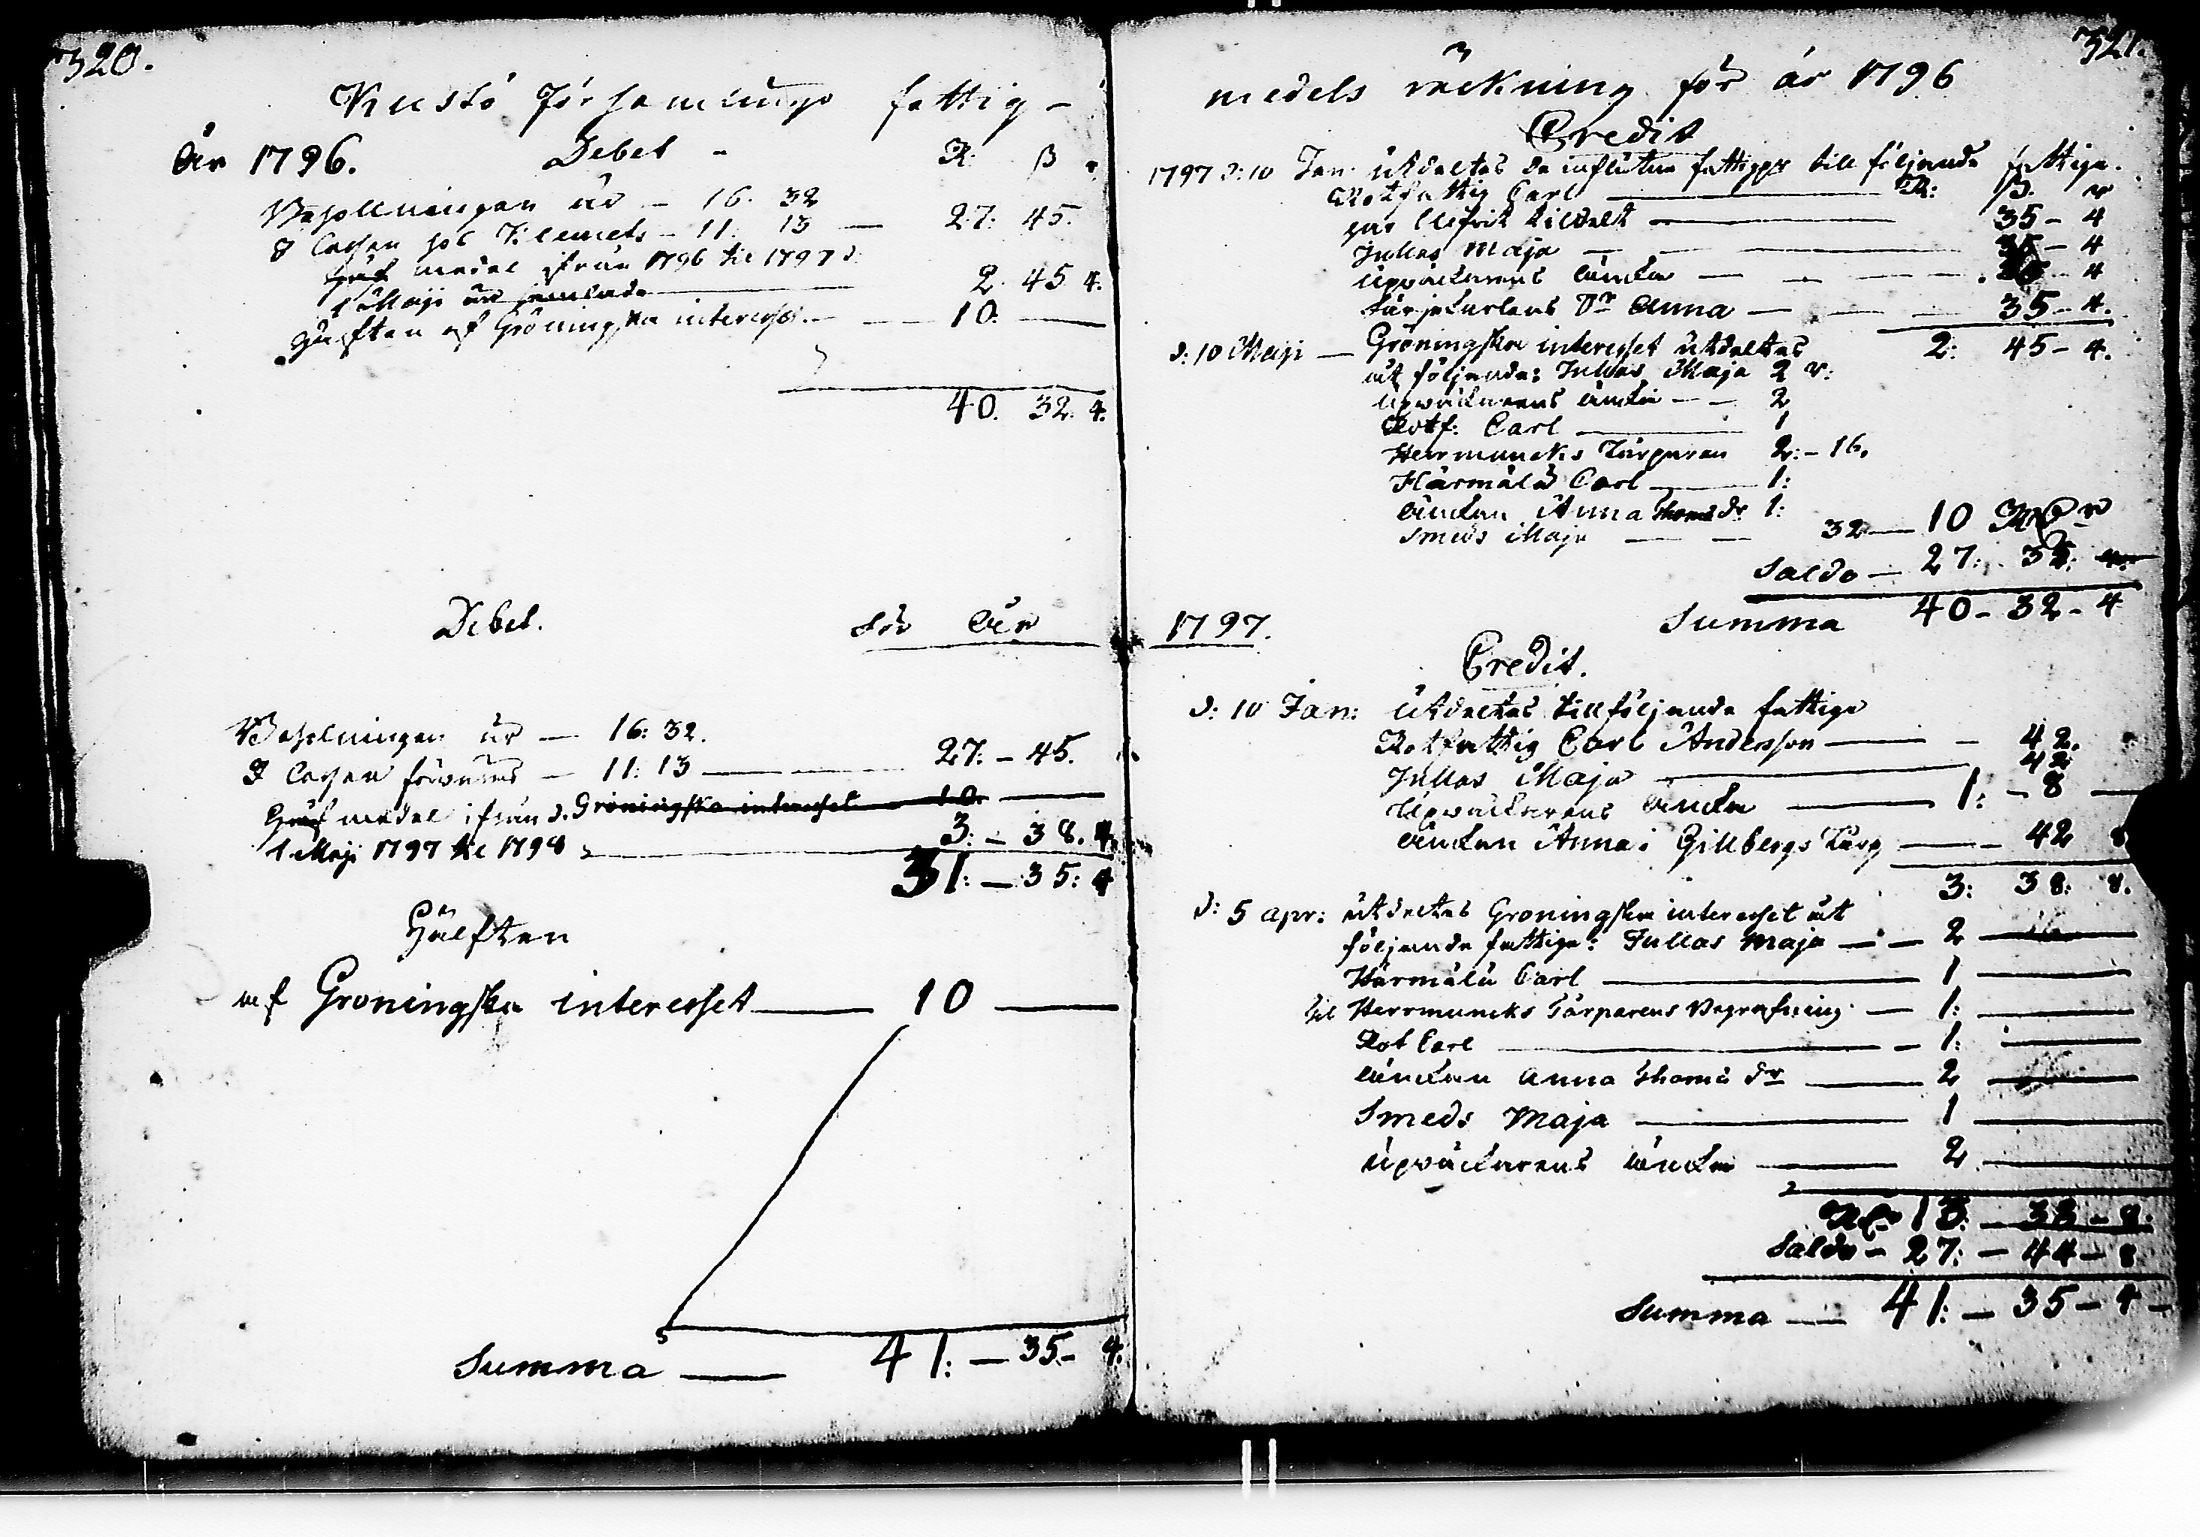 320.
Kustö Församlings fattig-
År 1796. Debet - R: ß.
Behollningen är - 16. 32
I Cassan hos Klemets - 11. 13 — 27: 45.
håf medel ifrån 1796 til 1797 d:
1 Maji är samlade — 2. 45 4.
Hälften af Gröningska interesset — 10. —
40. 32. 4.
Debet. för År
Beholningen är — 16: 32.
I Cassan förvaras — 11: 13 — 27. - 45.
Håf medel ifrån d. Gröningska interesset — 10. —
1 Maji 1797 til 1798 — 3: - 38. 4
31: — 35: 4
Hälften
af Groningska interesset — 10 —
Summa — 41: — 35. - 4.
321.
medels räckning för år 1796
Credit
1797 d: 10 Jan: utdeltes de influtne till följande fattige.
Rotfattig Carl — R: ß. r
tildelt — 35 - 4
Jullas Maja — 35 - 4
Upväckarens änka — - 4
Färjekarlens Dr Anna — 35 - 4.
d: 10 Maji — Gröningska interesset utdeltes 2: 45 - 4.
åt följande: Jullas Maja 2 r:
Upväckarens änka - - 2
Rotf: Carl — 1
Herrmuncks Torparen 2: - 16.
Härmälä Carl — 1:
änkan Anna Thoms dr 1:
Smeds Maja — 32 — 10
Saldo — 27: 35:
Summa 40 - 32 - 4
1797.
Credit.
d: 10 Jan: utdeltes till följande fattige
Rotfattig Carl Andersson — 42.
Jullas Maja — 42
Upväckarens änka — 1: - 8 —
änkan Anna i Gillbergs Torp — 42 8
3: 38: 8.
d: 5 apr: utdeltes Groningska interesset åt
följande fattige: Jullas Maja — 2 —
Härmälä Carl — 1 —
til Herrmuncks Torparens Begrafning — 1: —
Rot Carl — 1: —
änkan Anna Thoms dr — 2 —
Smeds Maja — 1 —
Upväckarens änka — 2 —
13: — 38 - 8.
Saldo - 27: — 44 - 8
Summa — 41: — 35 - 4 -